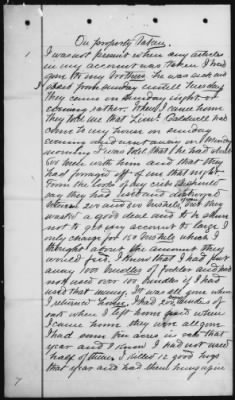 On property Taken.
1 I was not present when any articles
in my account was taken I had
gone to my brothers he was sick and
I staid from Sunday untill Tuesday
they came on Sunday night
evening rather. When I came home
they told me that Lieut. Caldwell had
come to my house on Sunday
evening and went away on Monday
morning. I was told that he had about
600 men with him and that they
had foraged off of me that night
From the looks of my crib I should
say they had used and destroyed
between 200 and 300 bushels, but they
wasted a good deal and to be shure
not to get my account to large I
only charge for 150 bushels which I
thought about the amount they
would feed. I knew that I had put
away 1000 bundles of Fodder and had
not used over 100 bundles if I had
used that many. It was all gone when
I returned home. I had 200 bundles of
oats when I left home and when
I came home they were all gone
I had some ten acres in oats that
year and I know I had not used
half of them I killed 12 good hogs
that year and had them hung up
7